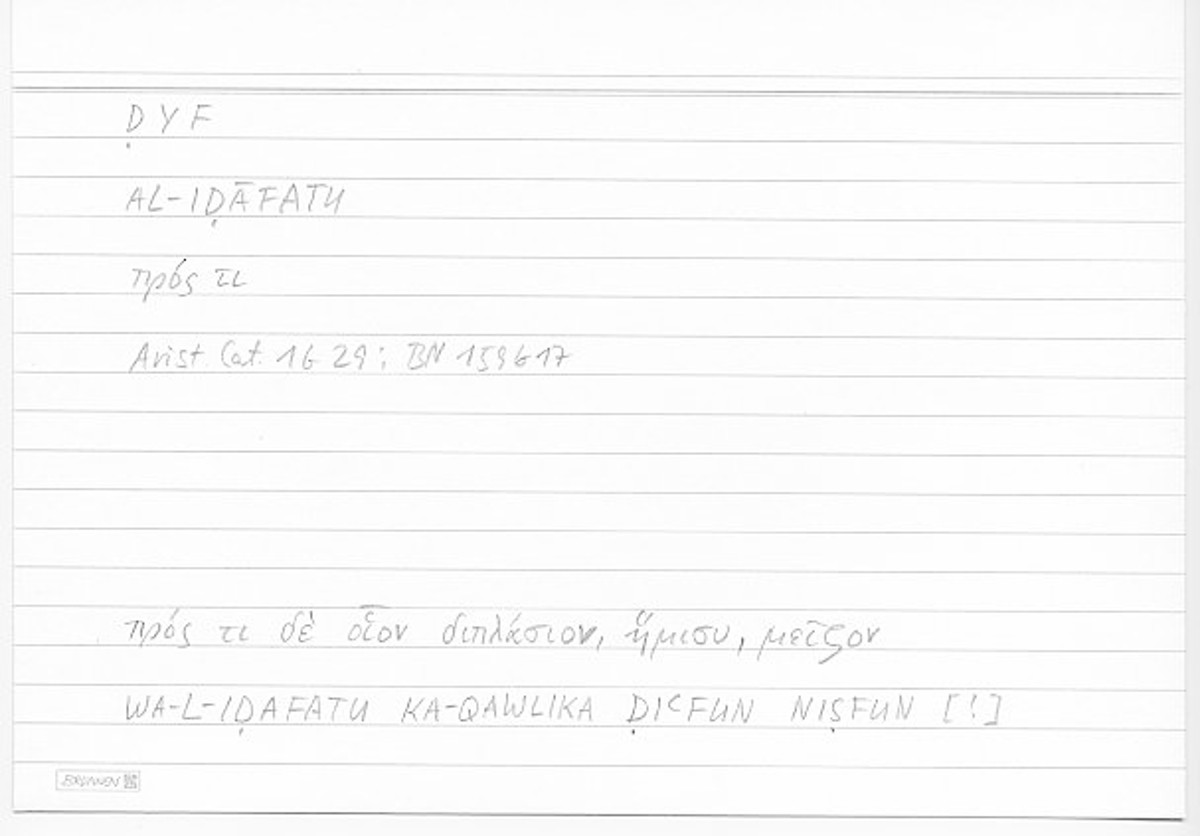 ḌYF
AL-IḌĀFATU
πρός τι
Arist. Cat. 1b 29; BN 159b17
πρός τι δὲ οἷον διπλάσιον, ἥμισυ, μεῖζον
WA-L-IḌAFATU KA-QAWLIKA ḌIʿFUN NIṢFUN [!]
BRUNNEN